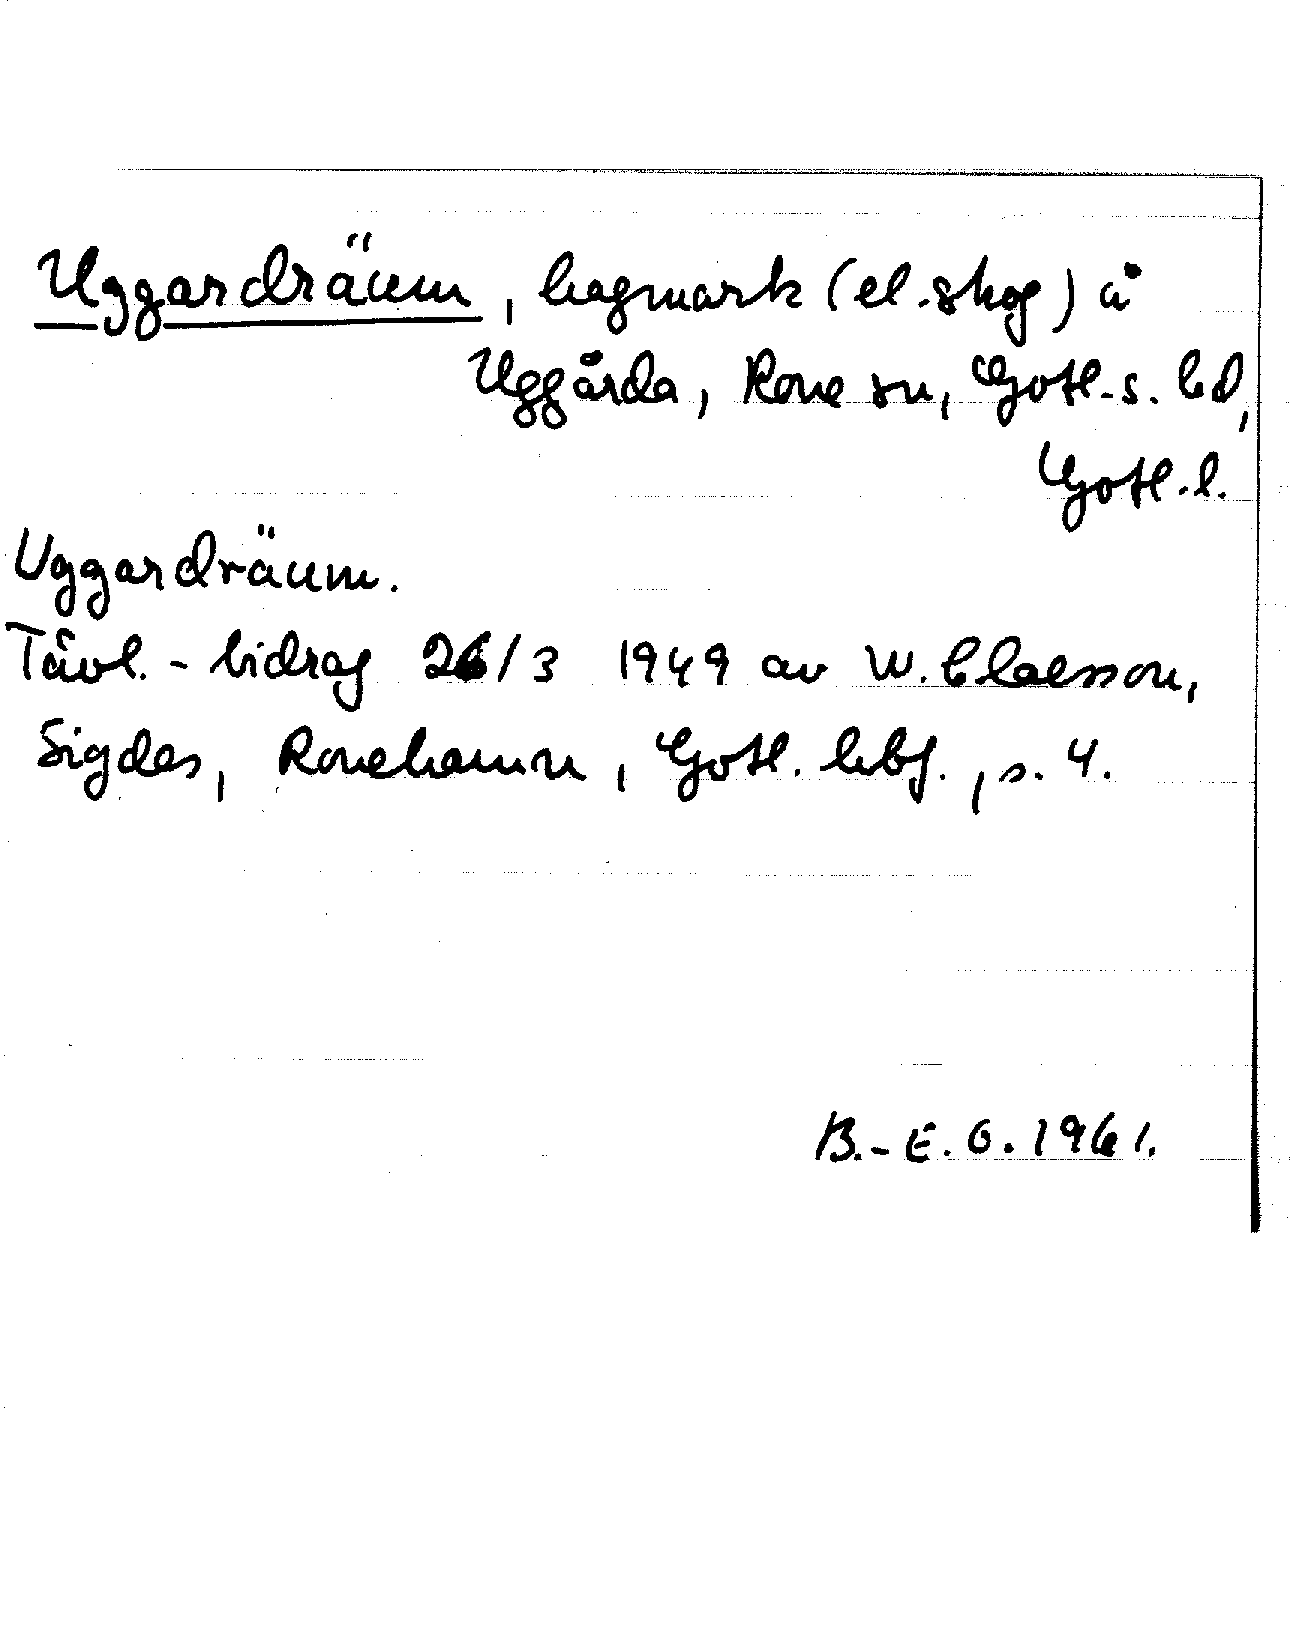 Uggardräum, hagmark (el. skog) å
Uggårda, Rone sn, Gotl. s. hd,
Gotl. l.
Uggardräum.
Tävl. - bidrag 26/3 1949 av W. Claesson,
Sigdes, Ronehamn, Gotl. hbf., s. 4.
B.-E. O. 1961.